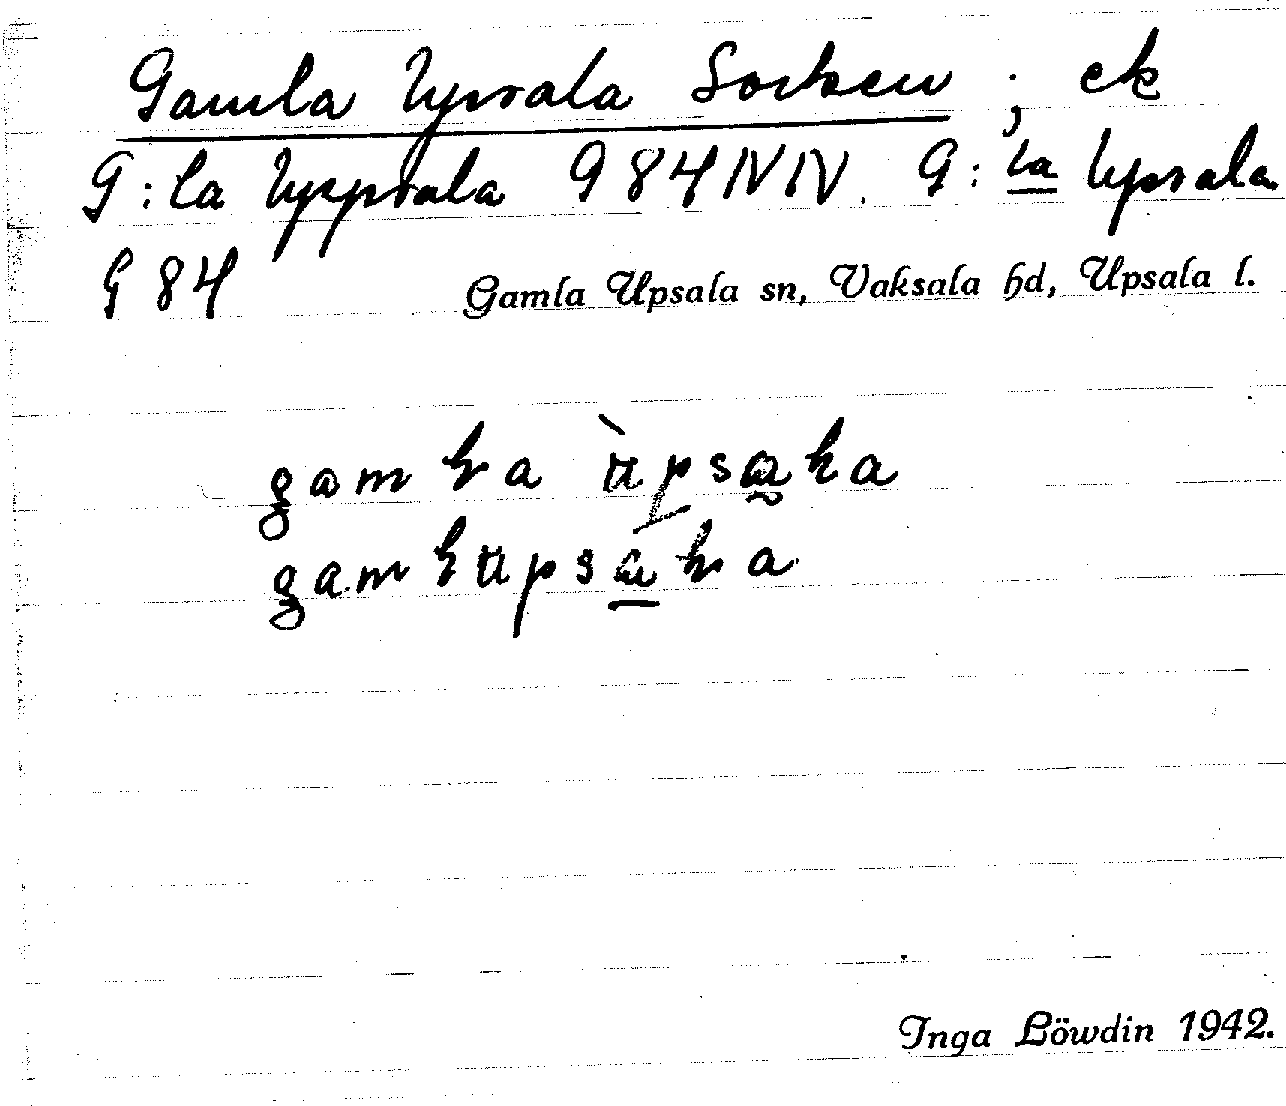 Gamla Upsala Socken ; ek
G:la Uppsala G 84 IV IV. G:la Upsala
G 84
Gamla Upsala sn, Vaksala hd, Upsala l.
Inga Löwdin 1942.